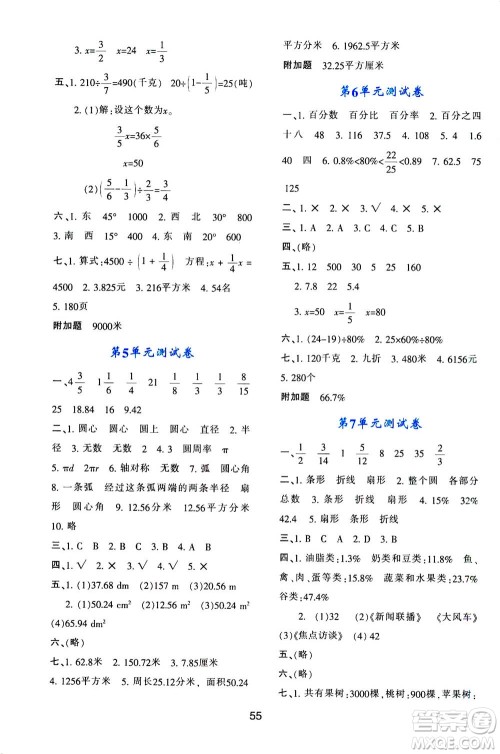 3. x=3/2　x=24　x=3/16
五、1. 210÷3/7=490(千克)　20÷(1-1/5)=25(吨)
2. (1)解:设这个数为x。
3/5x=36×5/6
x=50
(2)(5/6-1/3)÷1/4
六、1. 东　45°　1000　2. 西　北　30°
3. 南　西　15°　4. 东　北　20°
七、1. 算式:4500÷(1+1/4)　方程:x+1/4
x=4500　2. 39.25　3. 816平方米　4. 800千克
5. 180页
附加题　9000米
第5单元测试卷
一、4 3/5　1 1/6　1 1/4　21　1/8　1　8/15
25　18.84　16　9.42
二、1. 圆心　圆心　圆上　2. 圆心　半径　3. 半
径　4. 无数　无数　直径　圆周率　π
5. πd　2πr　6. 轴对称　无数　直径
7. 一条弧　经过这条弧两端的两条半径　扇
形　圆心角　8. 12.56平方米　9. 12.56平方米
10. 略
三、1. C　B　2. D　3. A　4. B
四、1. ✓　2. ×　3. ✓　4. ×
五、1. (1)37.68 dm　(2)51.4 dm
2. (1)50.24 cm²　(2)50.24 cm²
(4)65.94 dm²
六、(略)
七、1. 62.8米　2. 942米　3. 0.785平方米
4. 1256平方米　周长增加50.24米　5. 7536
平方分米　6. 1962.5平方米
附加题　32.25平方厘米
第6单元测试卷
一、1. 百分数　百分比　百分率　2. 百分之四
十八　48　3. 百分之几　4. 125　80　5. 16
40　四　6. 0.8%<80%<22/25<0.89　7. 80
125
二、1. ×　2. ×　3. ✓　4. ×　5. ×
三、1. A　2. C　3. B　4. C　5. A
四、(略)
五、1. 12　500　15　160　36　5
2. 7.8　22
3. x=10　x=4/9　x=8
六、1. (24-19)÷80%　2. 25×80%÷80%
七、1. 120千克　2. 九折　3. 80%　4. 6156元
5. 280个
附加题　66.7%
第7单元测试卷
一、1/2　1/3　1　5/12　8　25　35　2/3
二、1. 条形　折线　扇形　2. 整个圆　各部分
总数　3. 条形　折线　扇形　4. 15%　32%
42.4　5. (1)扇形　(2)折线　(3)条形
三、1. D　2. A　3. B　4. C　5. C
四、1. 油脂类:1.3%　奶类和豆类:6%　鱼、
禽、肉、蛋等类:12.7%　蔬菜和水果类:32.6%
谷类:47.4%
2. (1)32　(2)《新闻联播》　《大风车》
(3)《焦点访谈》　(4)42
五、(略)
六、(略)
七、1. 共有果树:3000棵,桃树:900棵,苹果树:
55
MMHXE.COM